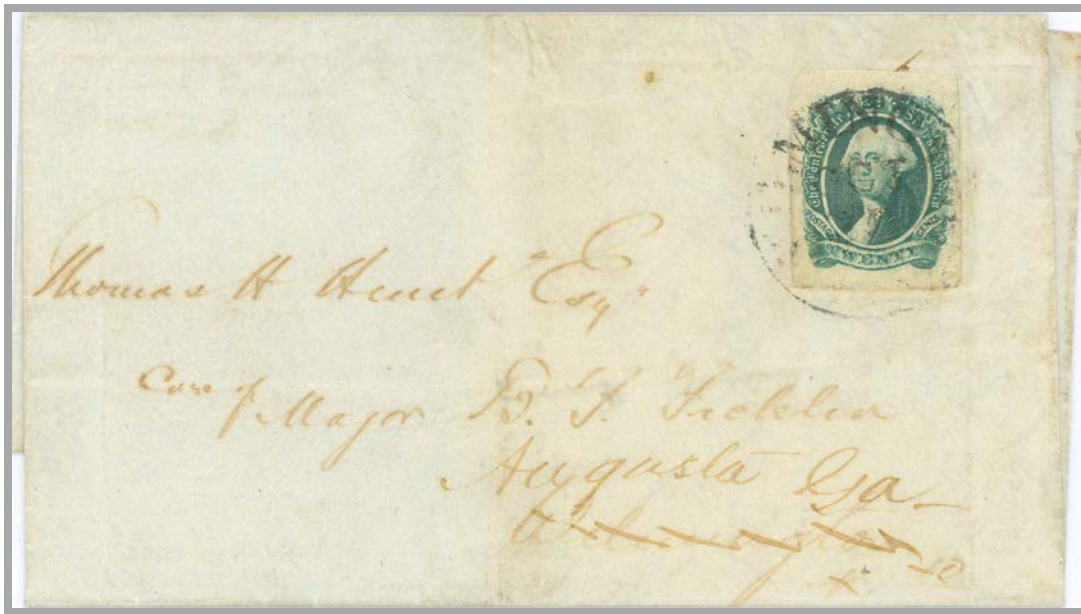 The Confederate States of America
POSTAGE CENTS
TWENTY
Thomas H Esqr
Care of
Major B. F. Ficklin
Augusta Ga
Wilmington
NC